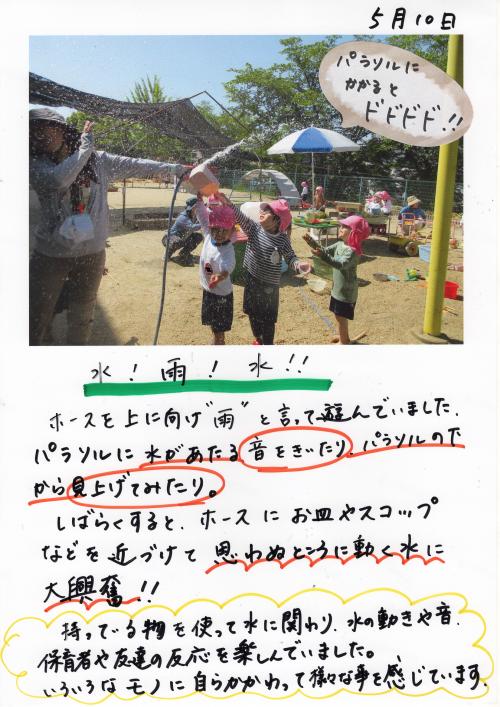 5月10日
パラソルに
かかると
ドドドド!!
水！雨！水!!
ホースを上に向け"雨"と言って遊んでいました。
パラソルに水があたる音をきいたり、パラソルの下
から見上げてみたり。
しばらくすると、ホースにお皿やスコップ
などを近づけて思わぬところに動く水に
大興奮!!
持っている物を使って水に関わり、水の動きや音、
保育者や友達の反応を楽しんでいました。
いろいろなモノに自らかかわって様々な事を感じています。